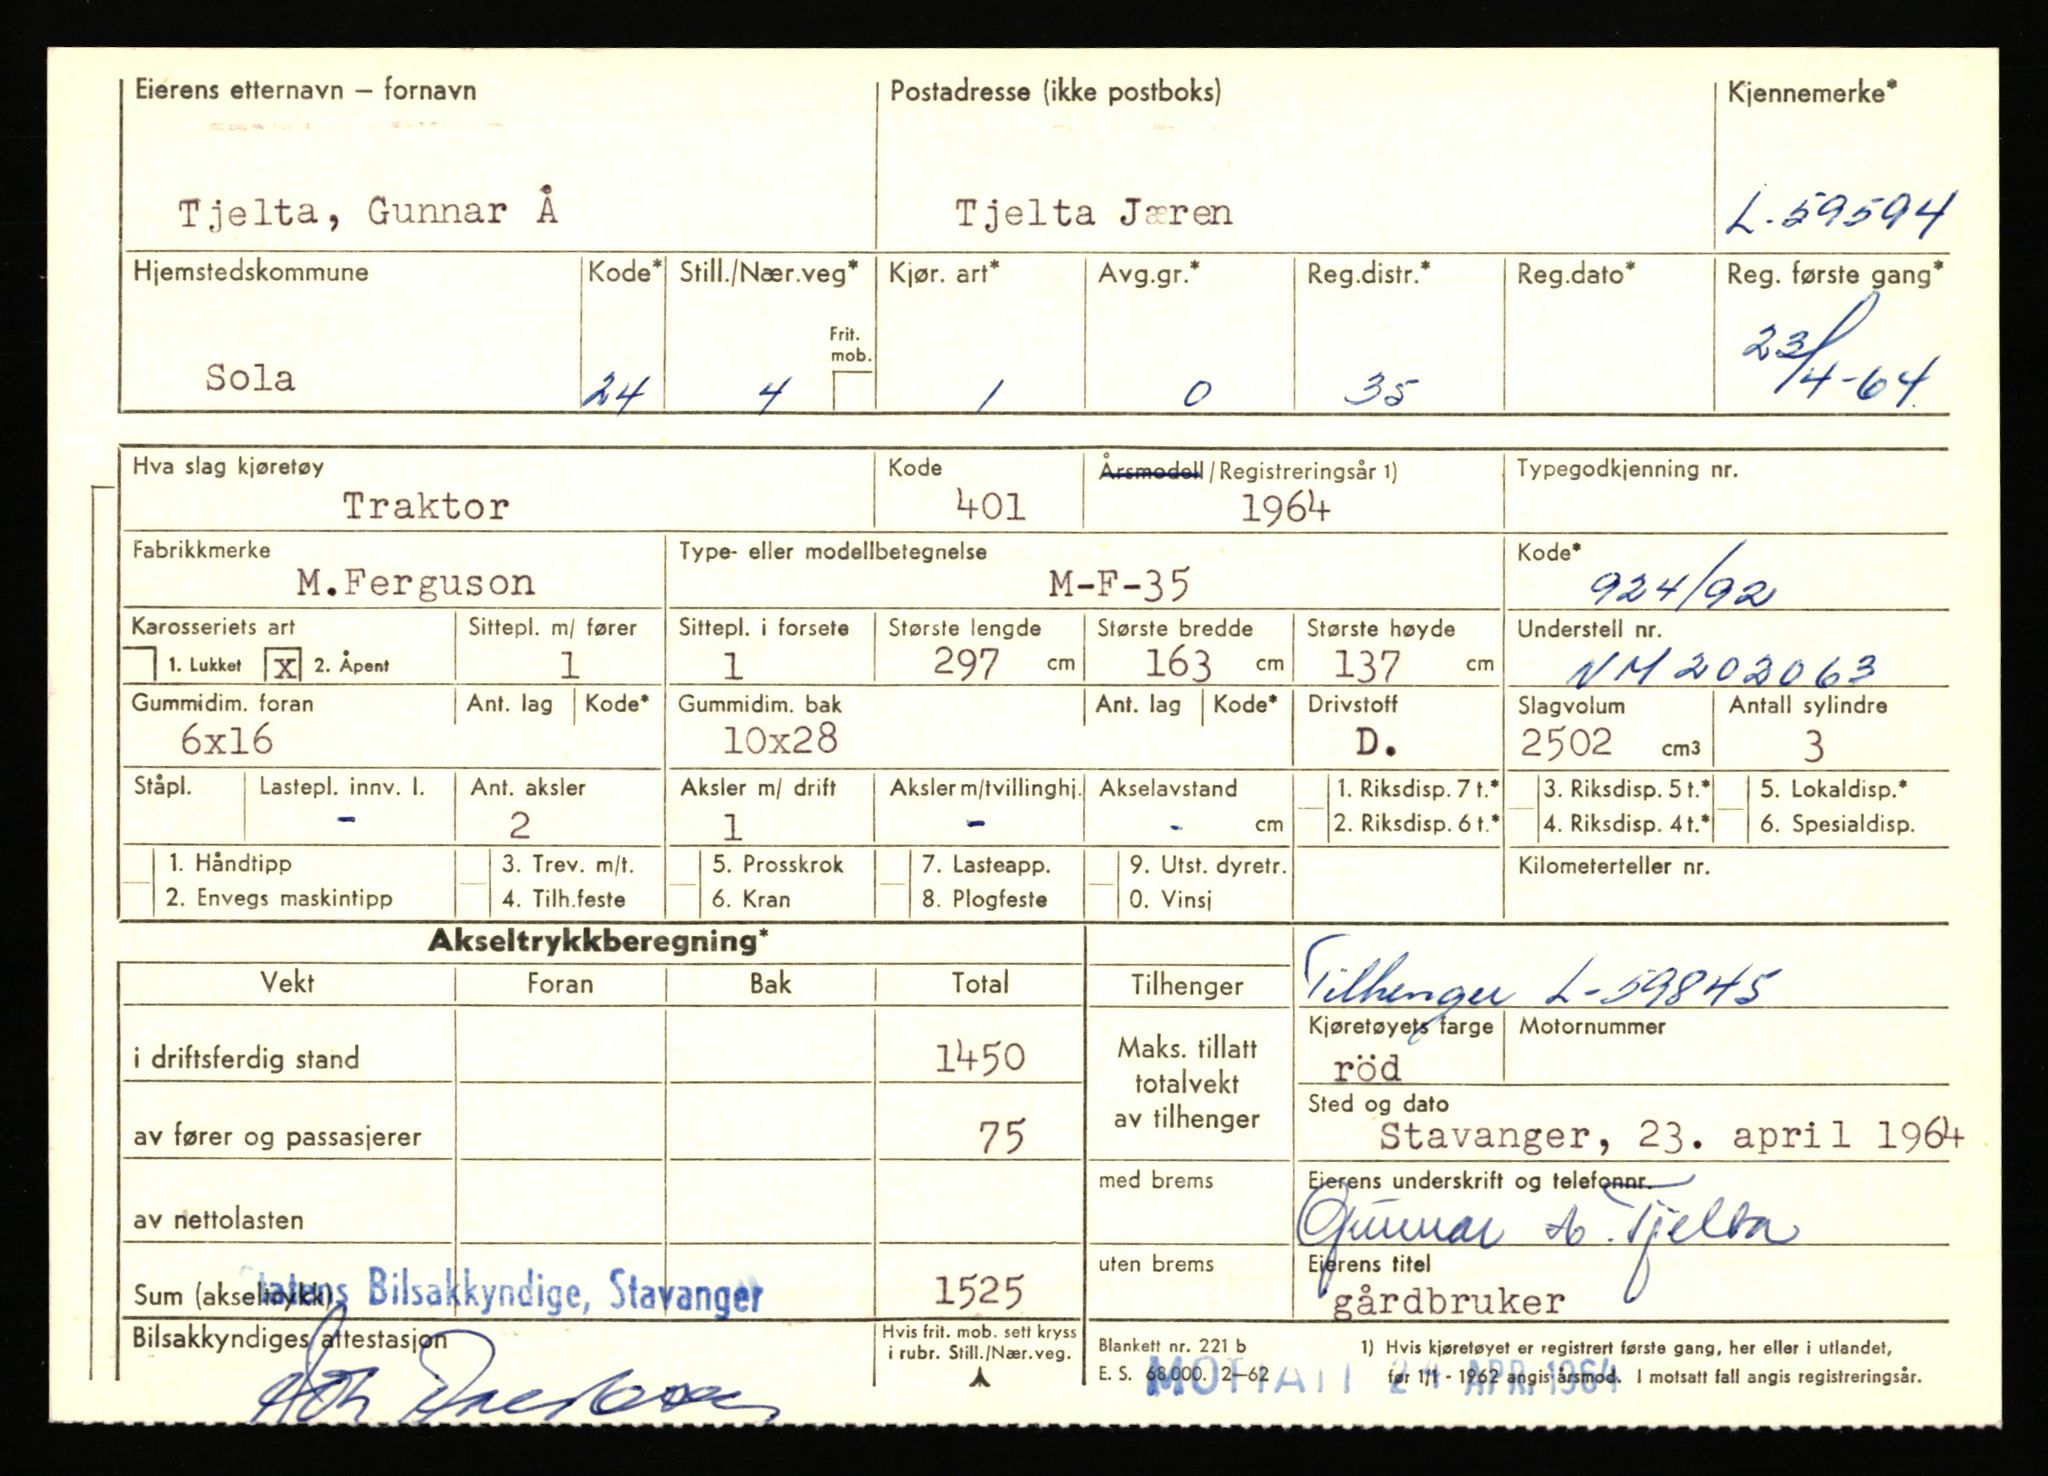 Eierens etternavn – fornavn Postadresse (ikke postboks) Kjennemerke*
Tjelta, Gunnar Å Tjelta Jæren L-59594
Hjemstedskommune Kode* Still./Nær.veg* Kjør. art* Avg.gr.* Reg.distr.* Reg.dato* Reg. første gang*
Frit.
mob.
Sola 24 4 1 0 35 23/4-64.
Hva slag kjøretøy Kode Årsmodell/Registreringsår 1) Typegodkjenning nr.
Traktor 401 1964
Fabrikkmerke Type- eller modellbetegnelse Kode*
M.Ferguson M-F-35 924/92
Karosseriets art Sittepl. m/ fører Sittepl. i forsete Største lengde Største bredde Største høyde Understell nr.
1. Lukket x 2. Åpent 1 1 297 cm 163 cm 137 cm NM 202063
Gummidim. foran Ant. lag Kode* Gummidim. bak Ant. lag Kode* Drivstoff Slagvolum Antall sylindre
6x16 10x28 D. 2502 cm3 3
Ståpl. Lastepl. innv. l. Ant. aksler Aksler m/ drift Aksler m/tvillinghj. Akselavstand 1. Riksdisp. 7 t.* 3. Riksdisp. 5 t.* 5. Lokaldisp.*
- 2 1 - - cm 2. Riksdisp. 6 t.* 4. Riksdisp. 4 t.* 6. Spesialdisp.
1. Håndtipp 3. Trev. m/t. 5. Prosskrok 7. Lasteapp. 9. Utst. dyretr. Kilometerteller nr.
2. Envegs maskintipp 4. Tilh.feste 6. Kran 8. Plogfeste 0. Vinsj
Akseltrykkberegning*
Vekt Foran Bak Total Tilhenger Tilhenger L-59845
Kjøretøyets farge Motornummer
i driftsferdig stand 1450 Maks. tillatt röd
totalvekt
Sted og dato
av tilhenger
av fører og passasjerer 75 Stavanger, 23. april 1964
med brems Eierens underskrift og telefonnr.
av nettolasten Gunnar A. Tjelta
uten brems Eierens titel
Sum (akseltrykk) Statens Bilsakkyndige, Stavanger 1525 gårdbruker
Bilsakkyndiges attestasjon Hvis frit. mob. sett kryss
i rubr. Still./Nær.veg.
Blankett nr. 221 b 1) Hvis kjøretøyet er registrert første gang, her eller i utlandet,
E. S. 68.000. 2–62 før 1/1 - 1962 angis årsmod. I motsatt fall angis registreringsår.
MOTTATT 24 APR. 1964